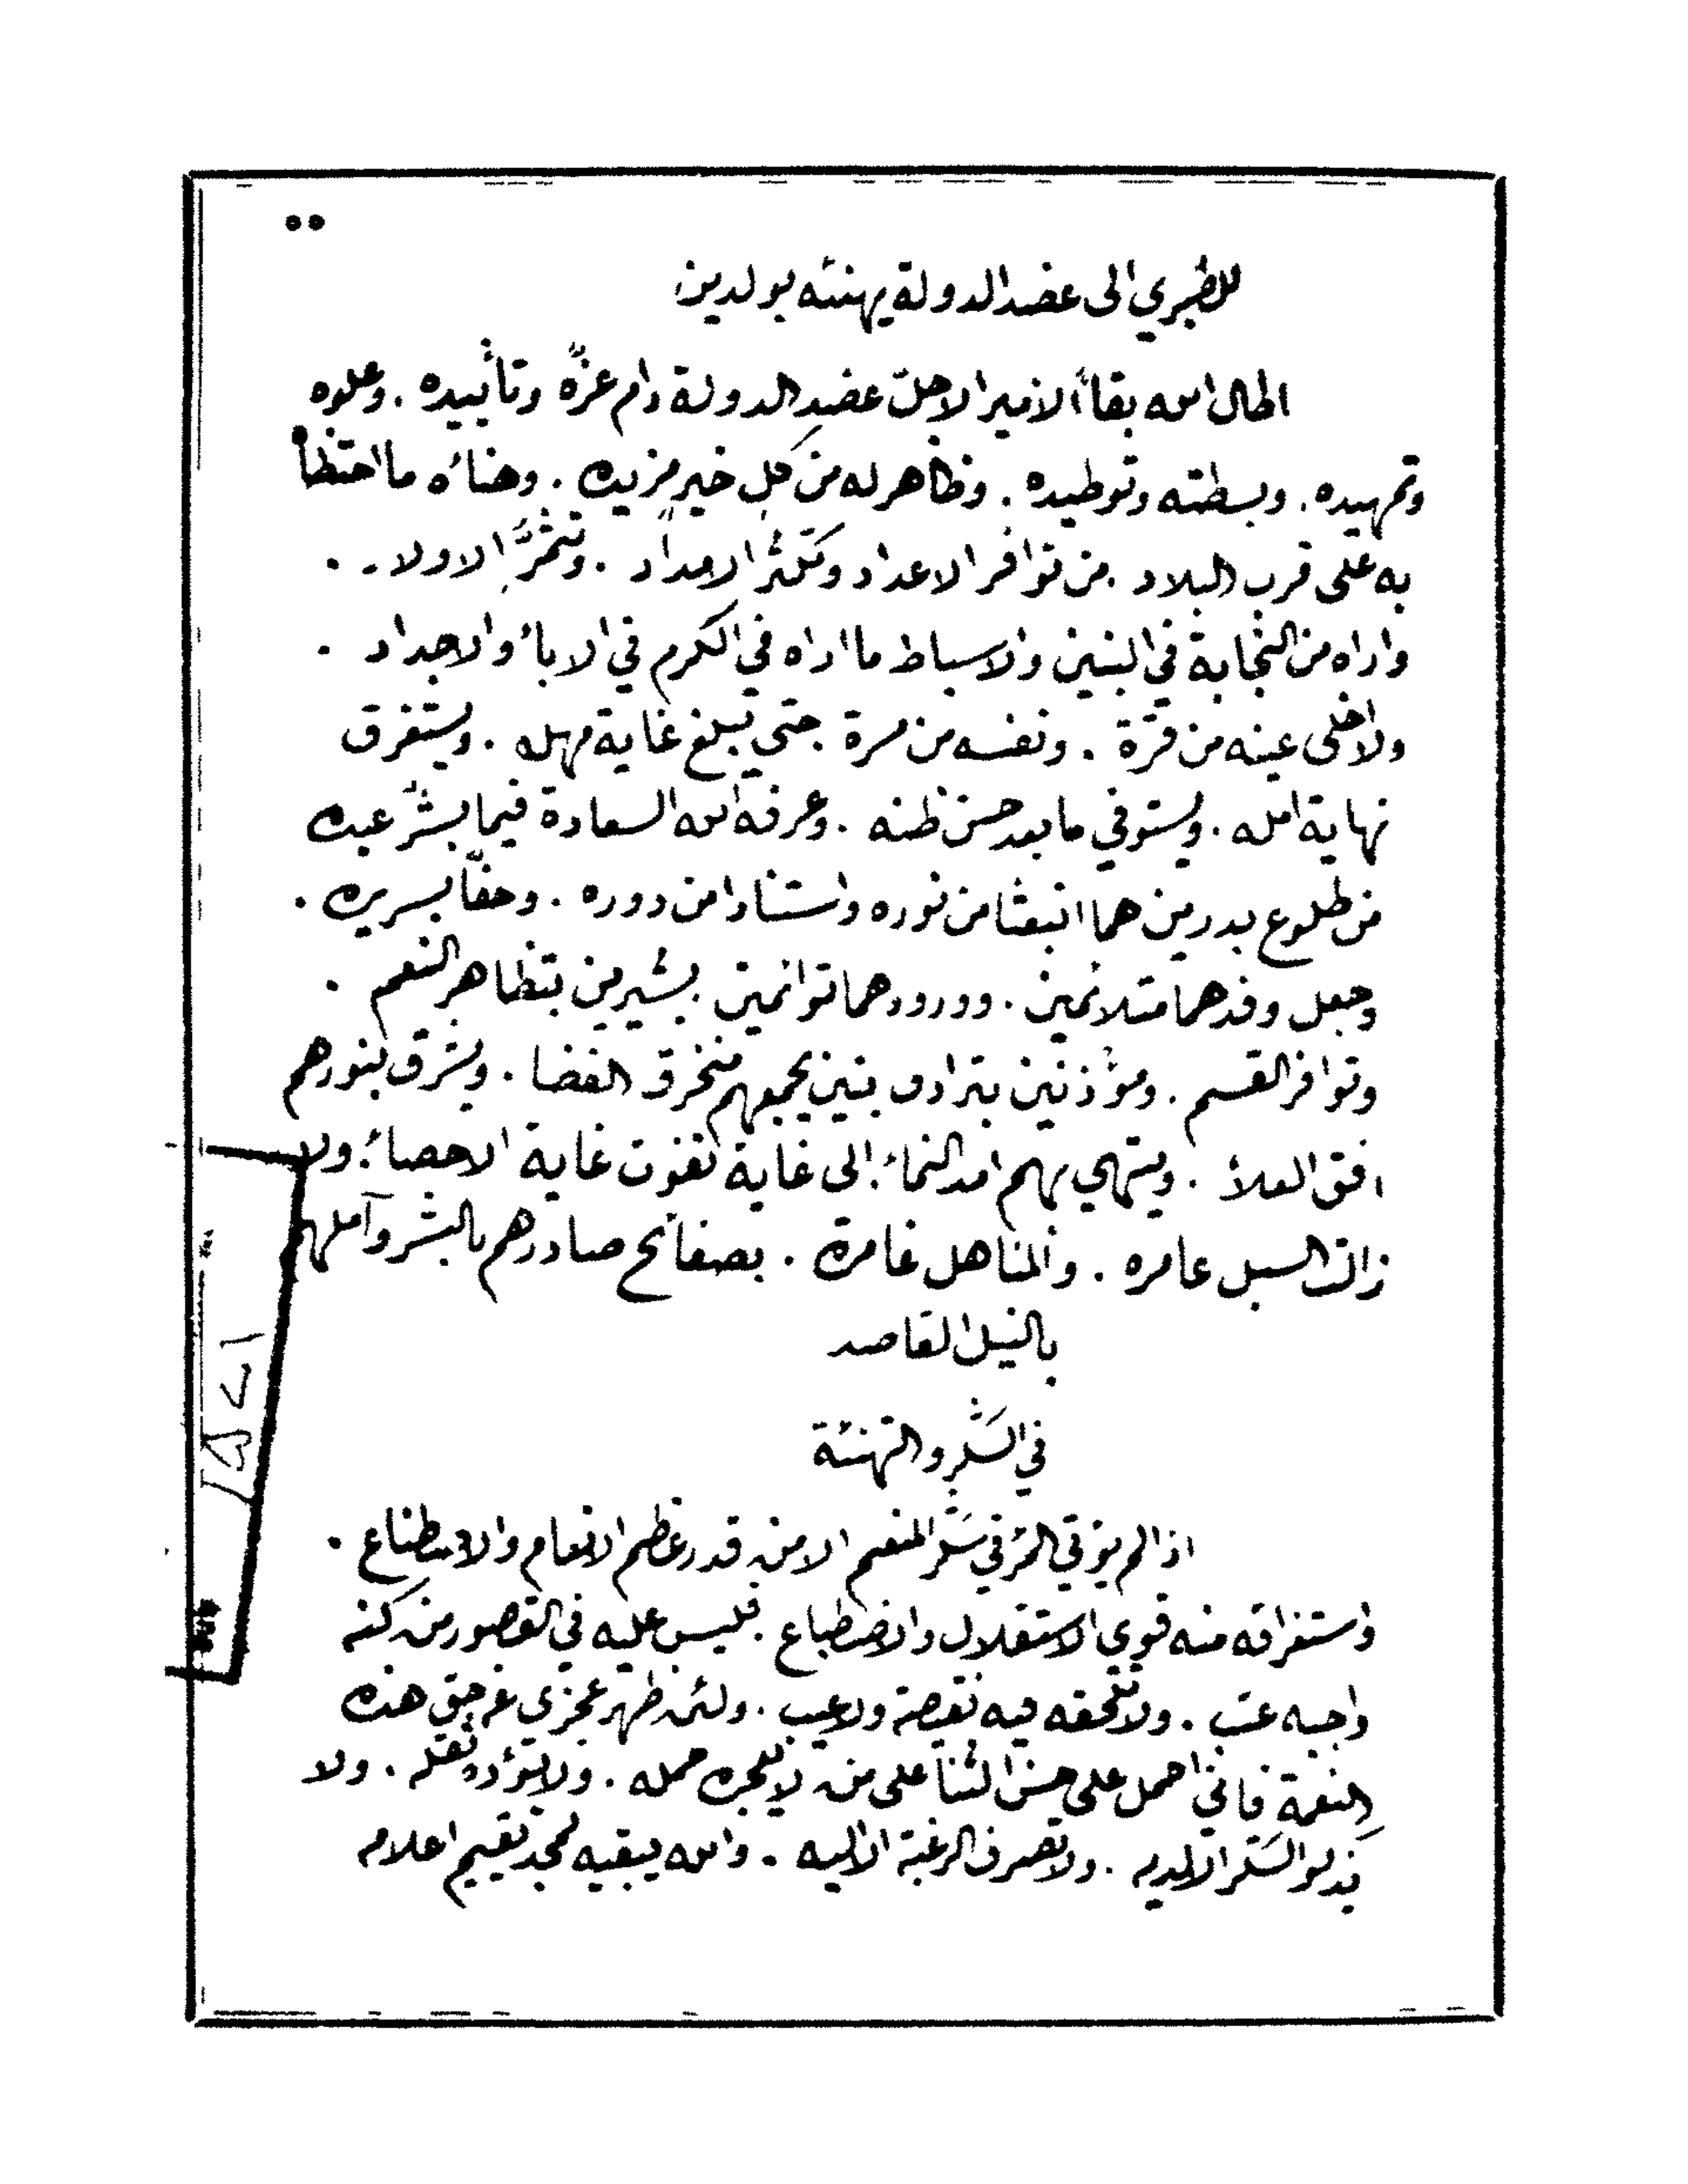 للطبري الى عضد الدولة يهنئه بولدين
اطال الله بقاأ الامير الاجلّ عضد الدولة دام عزّه وتأييده . وعلوه
وتمهيده . وبسطته وتوطيده . وظاهر له من كل خير مزيده . وهنائه ما احتظأ
به على قرب البلاد . من توافر الاعداد وتكثر الامداد . وتثمّر الاولاد .
واراه من النجابة في البنين والاسباط ما اراه في الكرم في الاباء والاجداد .
ولا اخلى عينه من قرة . ونفسه من مسرة . حتى يبلغ غاية مهله . ويستغرق
نهاية امله . ويستوفي ما بعد حسن ظنه . وعرفه الله السعادة فيما بشر عبده
من طلوع بدرين هما انبعثا من نوره واستنارا من دوره . وحفّا بسريره .
وجعل وفدهما متلائمين . وورودهما توائمين . بشيرين بتظاهر النعم .
وتوافر القسم . ومؤذنين بترادف بنين يجمعهم منخرق الفضا . ويشرق بنورهم
افق العلاء . وينتهي بهم امد النماء . الى غاية تفوت غاية الاحصاء . ولا
زالت السبل عامره . والمناهل غامرة . بصفائح صادرهم بالبشر وآملهم
بالنيل القاصد
في الشكر والتهنئة
اذا لم يؤتي المرء في شكر المنعم الا من قدر عظم الانعام والاصطناع .
واستغراقه منه قوي الاستقلال والاضطباع . فليس عليه في القصور من كنه
واجبه عتب . ولا تلحقه فيه نقيصة ولا عيب . ولئن ظهر عجزي عن حق هذه
النعمة فاني احمل على حسن الثنا على من لا يعجزه حمله . ولا يؤده ثقله . ولا
يزكو الشكر الا لديه . ولا تصرف الرغبة الا اليه . والله يبقيه لمجد يقيم اعلامه